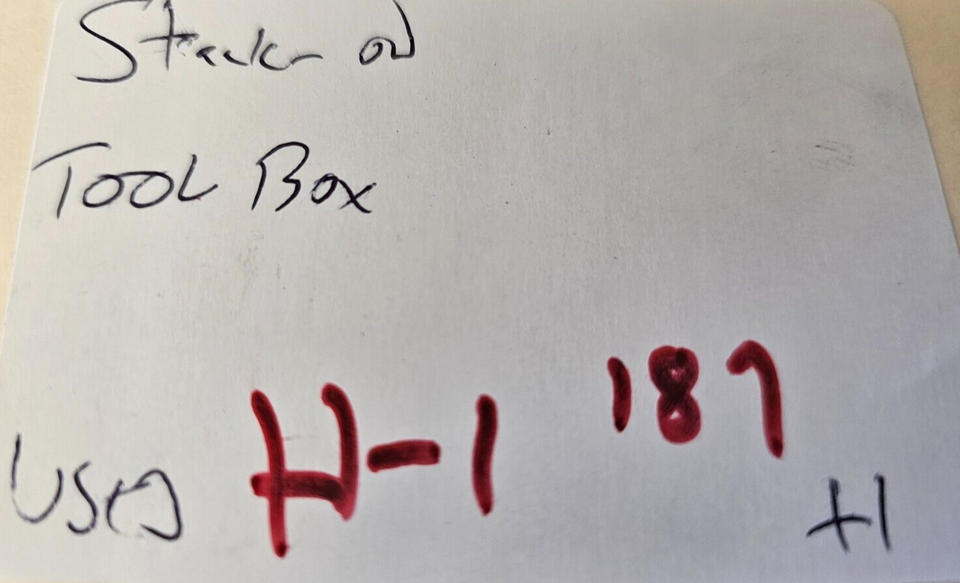 Stack-on
Tool Box
187
Used H-1
+1